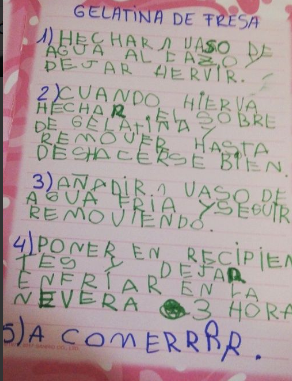 GELATINA DE FRESA
1) HECHAR 1 VASO DE
AGUA AL CAZO Y
DEJAR HERVIR.
2) CUANDO HIERVA
HECHAR EL SOBRE
DE GELATINA Y
REMOVER HASTA
DESHACERSE BIEN.
3) AÑADIR 1 VASO DE
AGUA FRIA Y SEGUIR
REMOVIENDO.
4) PONER EN RECIPIEN
TES Y DEJAR
ENFRIAR EN LA
NEVERA 3 HORA
5) A COMERRRR.